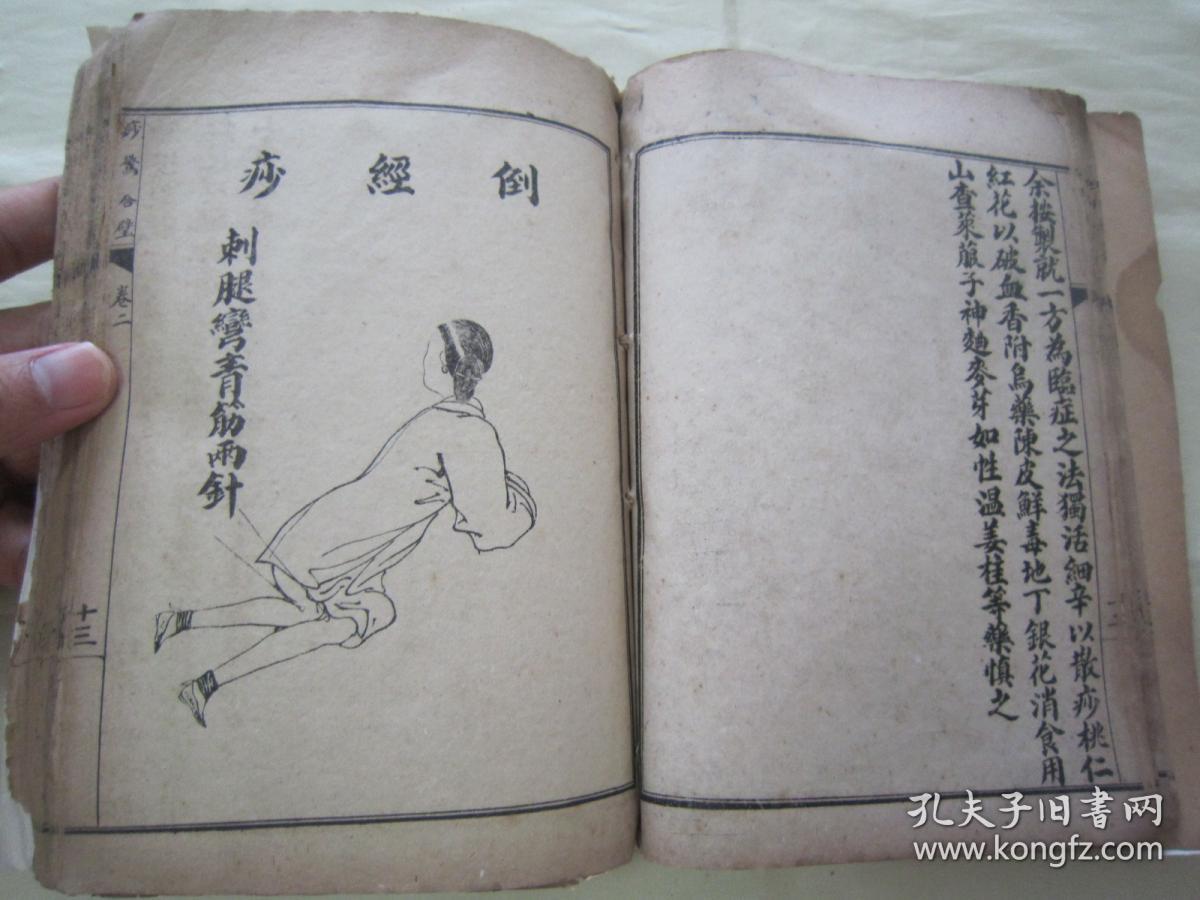 余按製就一方為臨症之法獨活細辛以散痧桃仁
紅花以破血香附烏藥陳皮鮮毒地丁銀花消食用
山查萊菔子神麯麥芽如性温姜桂等藥慎之
倒經痧
刺腿彎青筋兩針
痧驚合璧
卷二
十三
孔夫子旧书网
www.kongfz.com